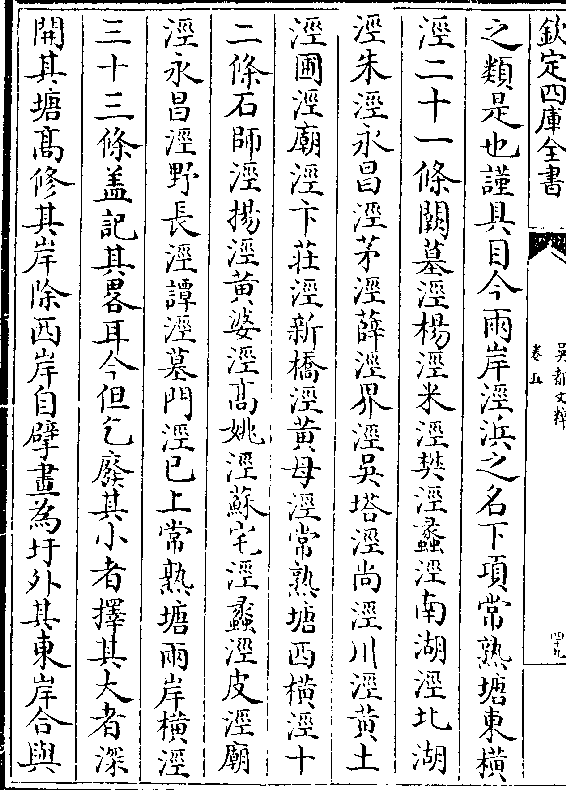 欽定四庫全書
吳都文粹
卷五
四九
之類是也謹具目今兩岸涇浜之名下項常熟塘東橫
涇二十一條闕墓涇楊涇米涇樊涇蠡涇南湖涇北湖
涇朱涇永昌涇茅涇薛涇界涇吳塔涇尚涇川涇黄土
涇圃涇廟涇卞莊涇新橋涇黄母涇常熟塘西橫涇十
二條石師涇揚涇黄婆涇高姚涇蘇宅涇蠡涇皮涇廟
涇永昌涇野長涇譚涇墓門涇已上常熟塘兩岸橫涇
三十三條盖記其畧耳今但乞廢其小者擇其大者深
開其塘髙修其岸除西岸自擘畫為圩外其東岸合與